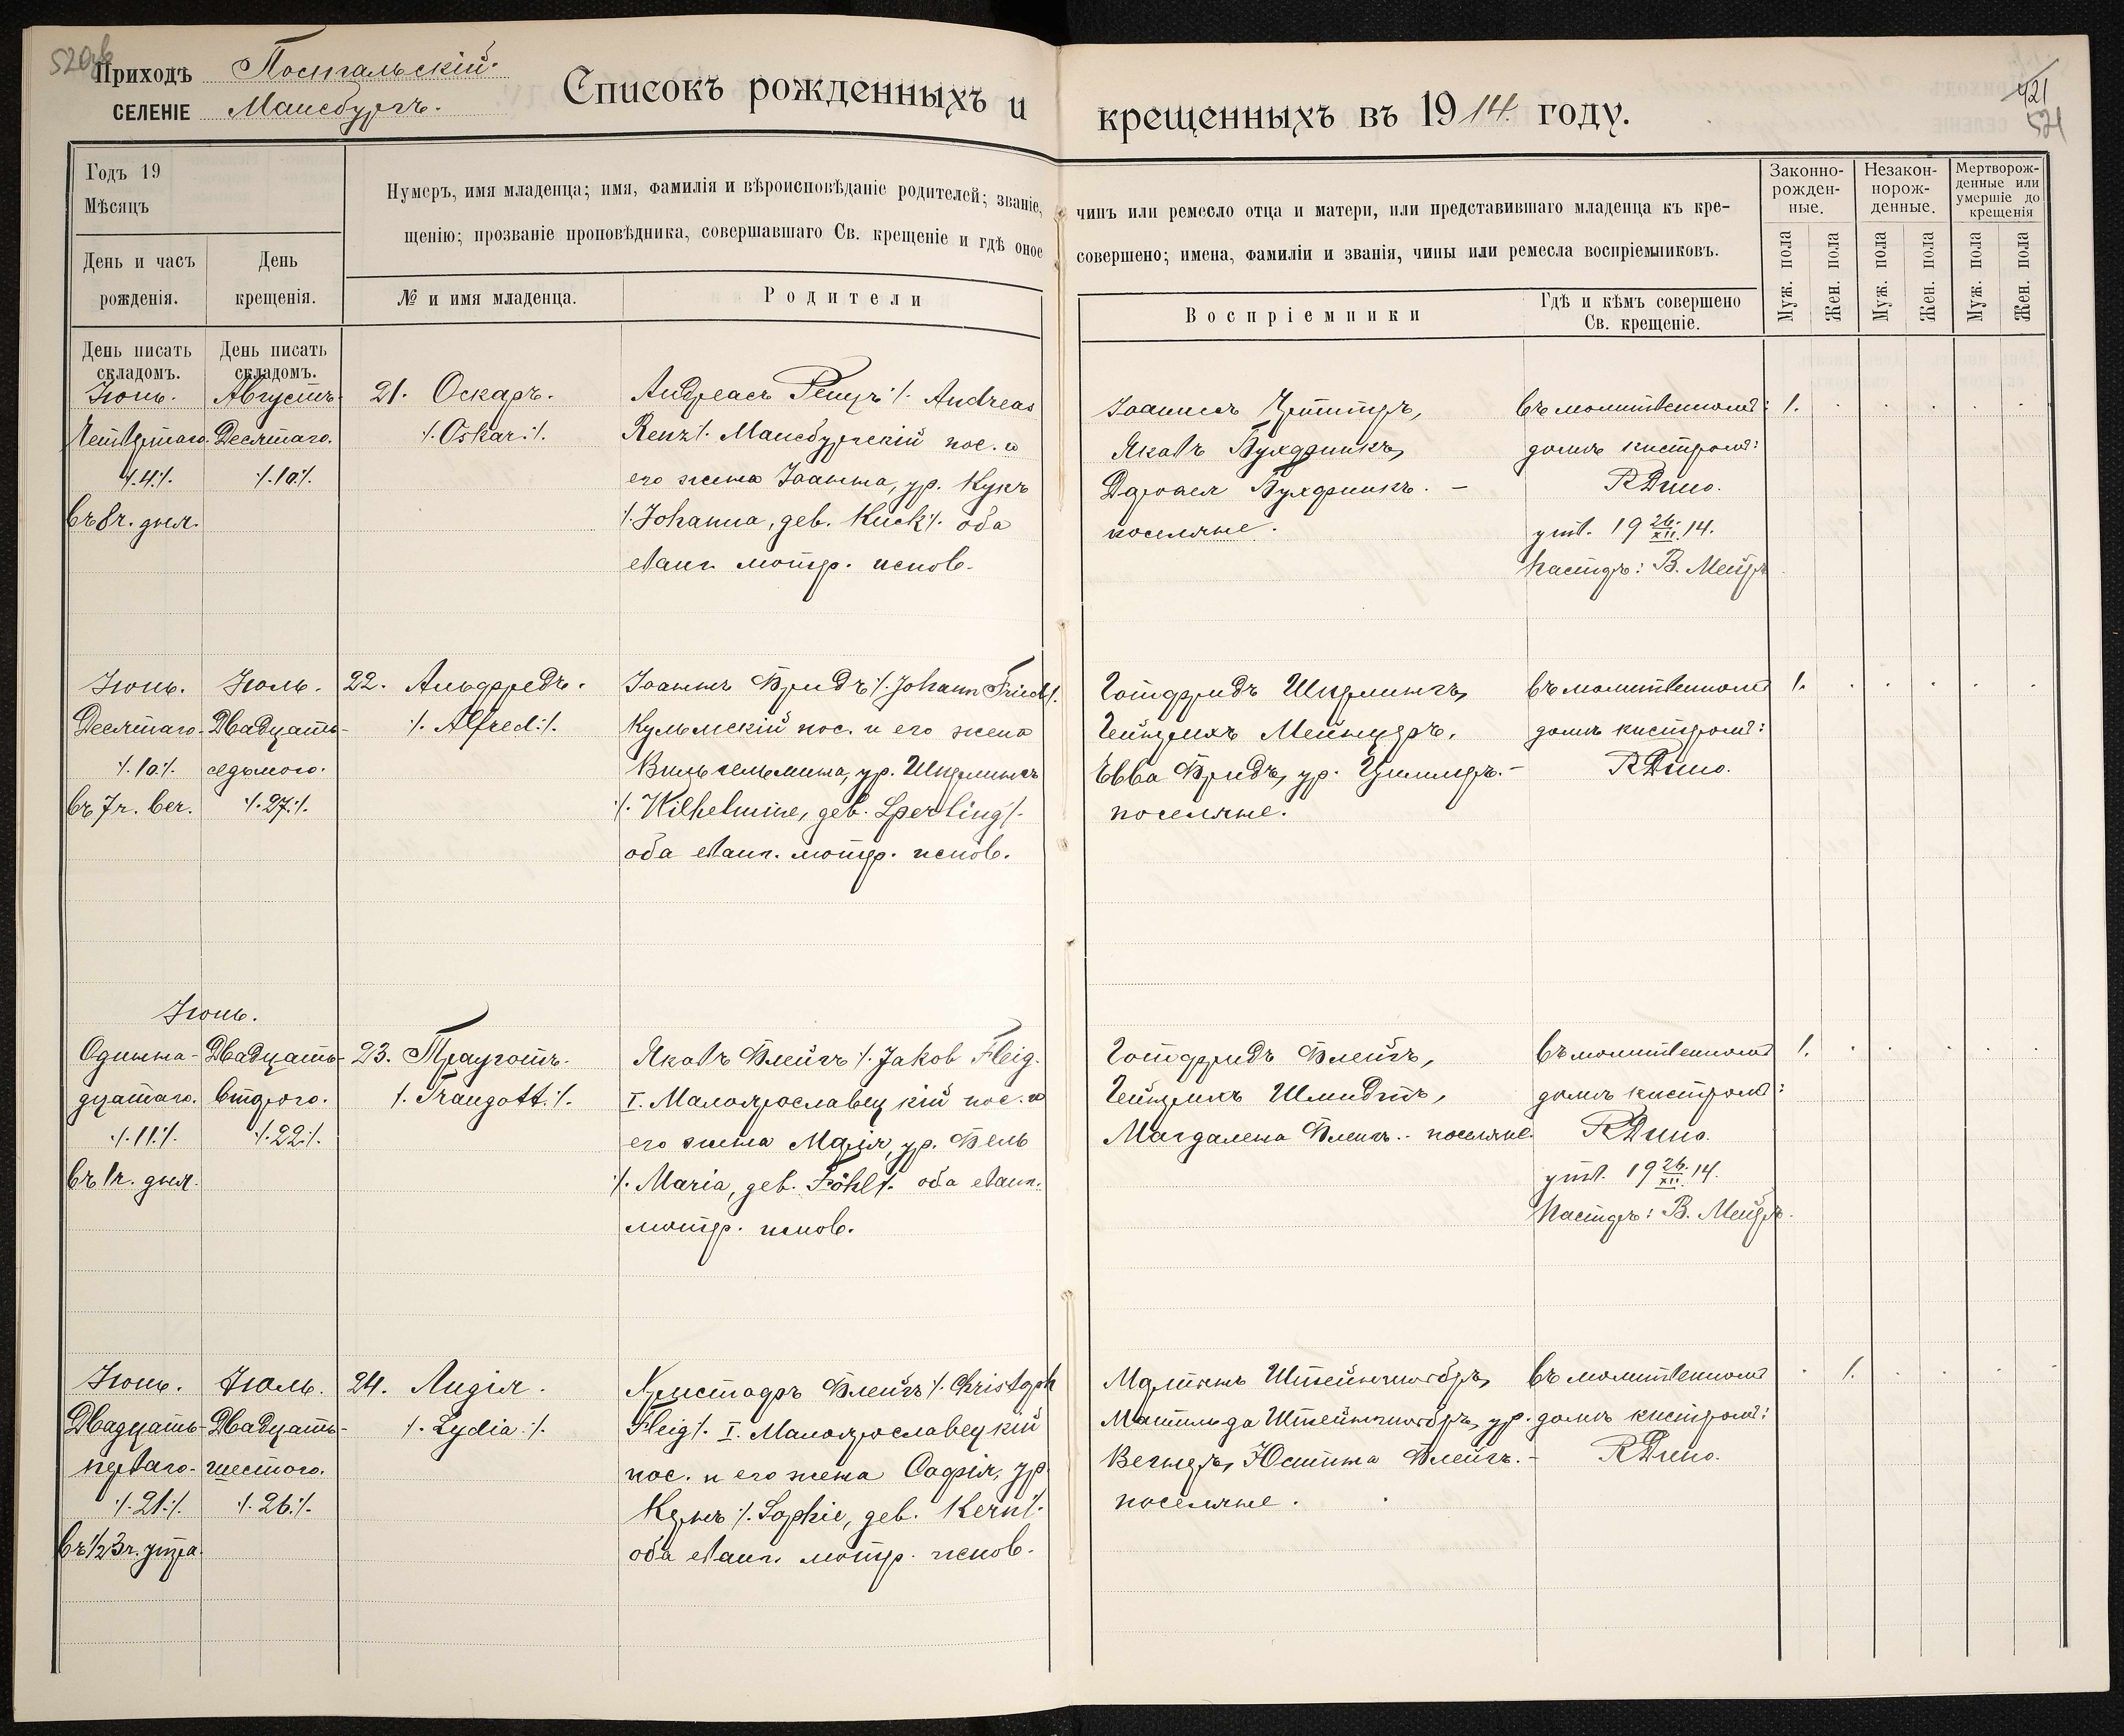 520об
Приходъ Постальскій.
СЕЛЕНІЕ Мансбургъ.
Списокъ рожденныхъ и крещенныхъ въ 1914. году.
421
521
Годъ 19
Мѣсяцъ
День и часъ рожденія.
День крещенія.
Нумеръ, имя младенца; имя, фамилія и вѣроисповѣданіе родителей; званіе, чинъ или ремесло отца и матери, или представившаго младенца къ кре-
щенію; прозваніе проповѣдника, совершавшаго Св. крещеніе и гдѣ оное совершено; имена, фамиліи и званія, чины или ремесла воспріемниковъ.
№ и имя младенца.
Родители
Воспріемники
Гдѣ и кѣмъ совершено Св. крещеніе.
Законно-рожден-ные.
Незакон-норож-денные.
Мертворож-денные или умершіе до крещенія
Муж. пола
Жен. пола
Муж. пола
Жен. пола
Муж. пола
Жен. пола
День писать складомъ.
День писать складомъ.
Іюнь.
Четвертаго.
/.4./.
въ 8ч. дня.
Августъ.
Десятаго.
/.10./.
21. Оскаръ.
/.Oskar./.
Андреасъ Ренцъ /. Andreas
Renz/. Мансбургскій пос. и
его жена Іоанна, ур. Кукъ
/.Johanna, geb. Kuck/. оба
еванг. лютер. испов.
Іоаннесъ
Яковъ Бухфинкъ,
Бухфинкъ. –
поселяне.
въ молитвенномъ
домѣ кистромъ:
утв. 19 26/XII. 14.
Пасторъ: В. Мейеръ
1.
Іюнь.
Десятаго.
/.10./.
въ 7ч. веч.
Іюль.
Двадцать-
седьмого.
/.27./.
22. Альфредъ.
/. Alfred./.
Іоаннъ Фридъ /.Johann Fried/.
Кульмскій пос. и его жена
Вильгельмина, ур. Шперлингъ
/. Wilhelmine, geb. Sperling/.
оба еванг. лютер. испов.
Готфридъ Шперлингъ,
Гейнрихъ Мейнцеръ,
Евва Фридъ, ур. Циммеръ. –
поселяне.
въ молитвенномъ
домѣ кистромъ:
1.
Іюнь.
Одинна-
дцатаго.
/.11./.
въ 1ч. дня.
Двадцать-
второго.
/.22./.
23. Трауготъ.
/. Traugott./.
Яковъ Флейгъ /. Jakob Fleig.
I. Малоярославецкій пос. и
его жена Марія, ур. Фель
/. Maria, geb. Föhl/. оба еванг.
лютер. испов.
Готфридъ Флейгъ,
Гейнрихъ Шмидтъ,
Магдалена Флейгъ. – поселяне.
въ молитвенномъ
домѣ кистромъ:
утв. 19 26/XII. 14.
Пасторъ: В. Мейеръ.
1.
Іюнь.
Двадцать-
перваго.
/.21./.
въ 1/2 3ч. утра.
Іюль.
Двадцать-
шестого.
/.26./.
24. Лидія.
/. Lydia./.
Христофъ Флейгъ /. Christoph
Fleig/. I. Малоярославецкій
пос. и его жена Софія, ур.
Кернъ /. Sophie, geb. Kern/.
оба еванг. лютер. испов.
Мартинъ
Матильда ур.
Вегнеръ, Юстина Флейгъ. –
поселяне.
въ молитвенномъ
домѣ кистромъ:
1.